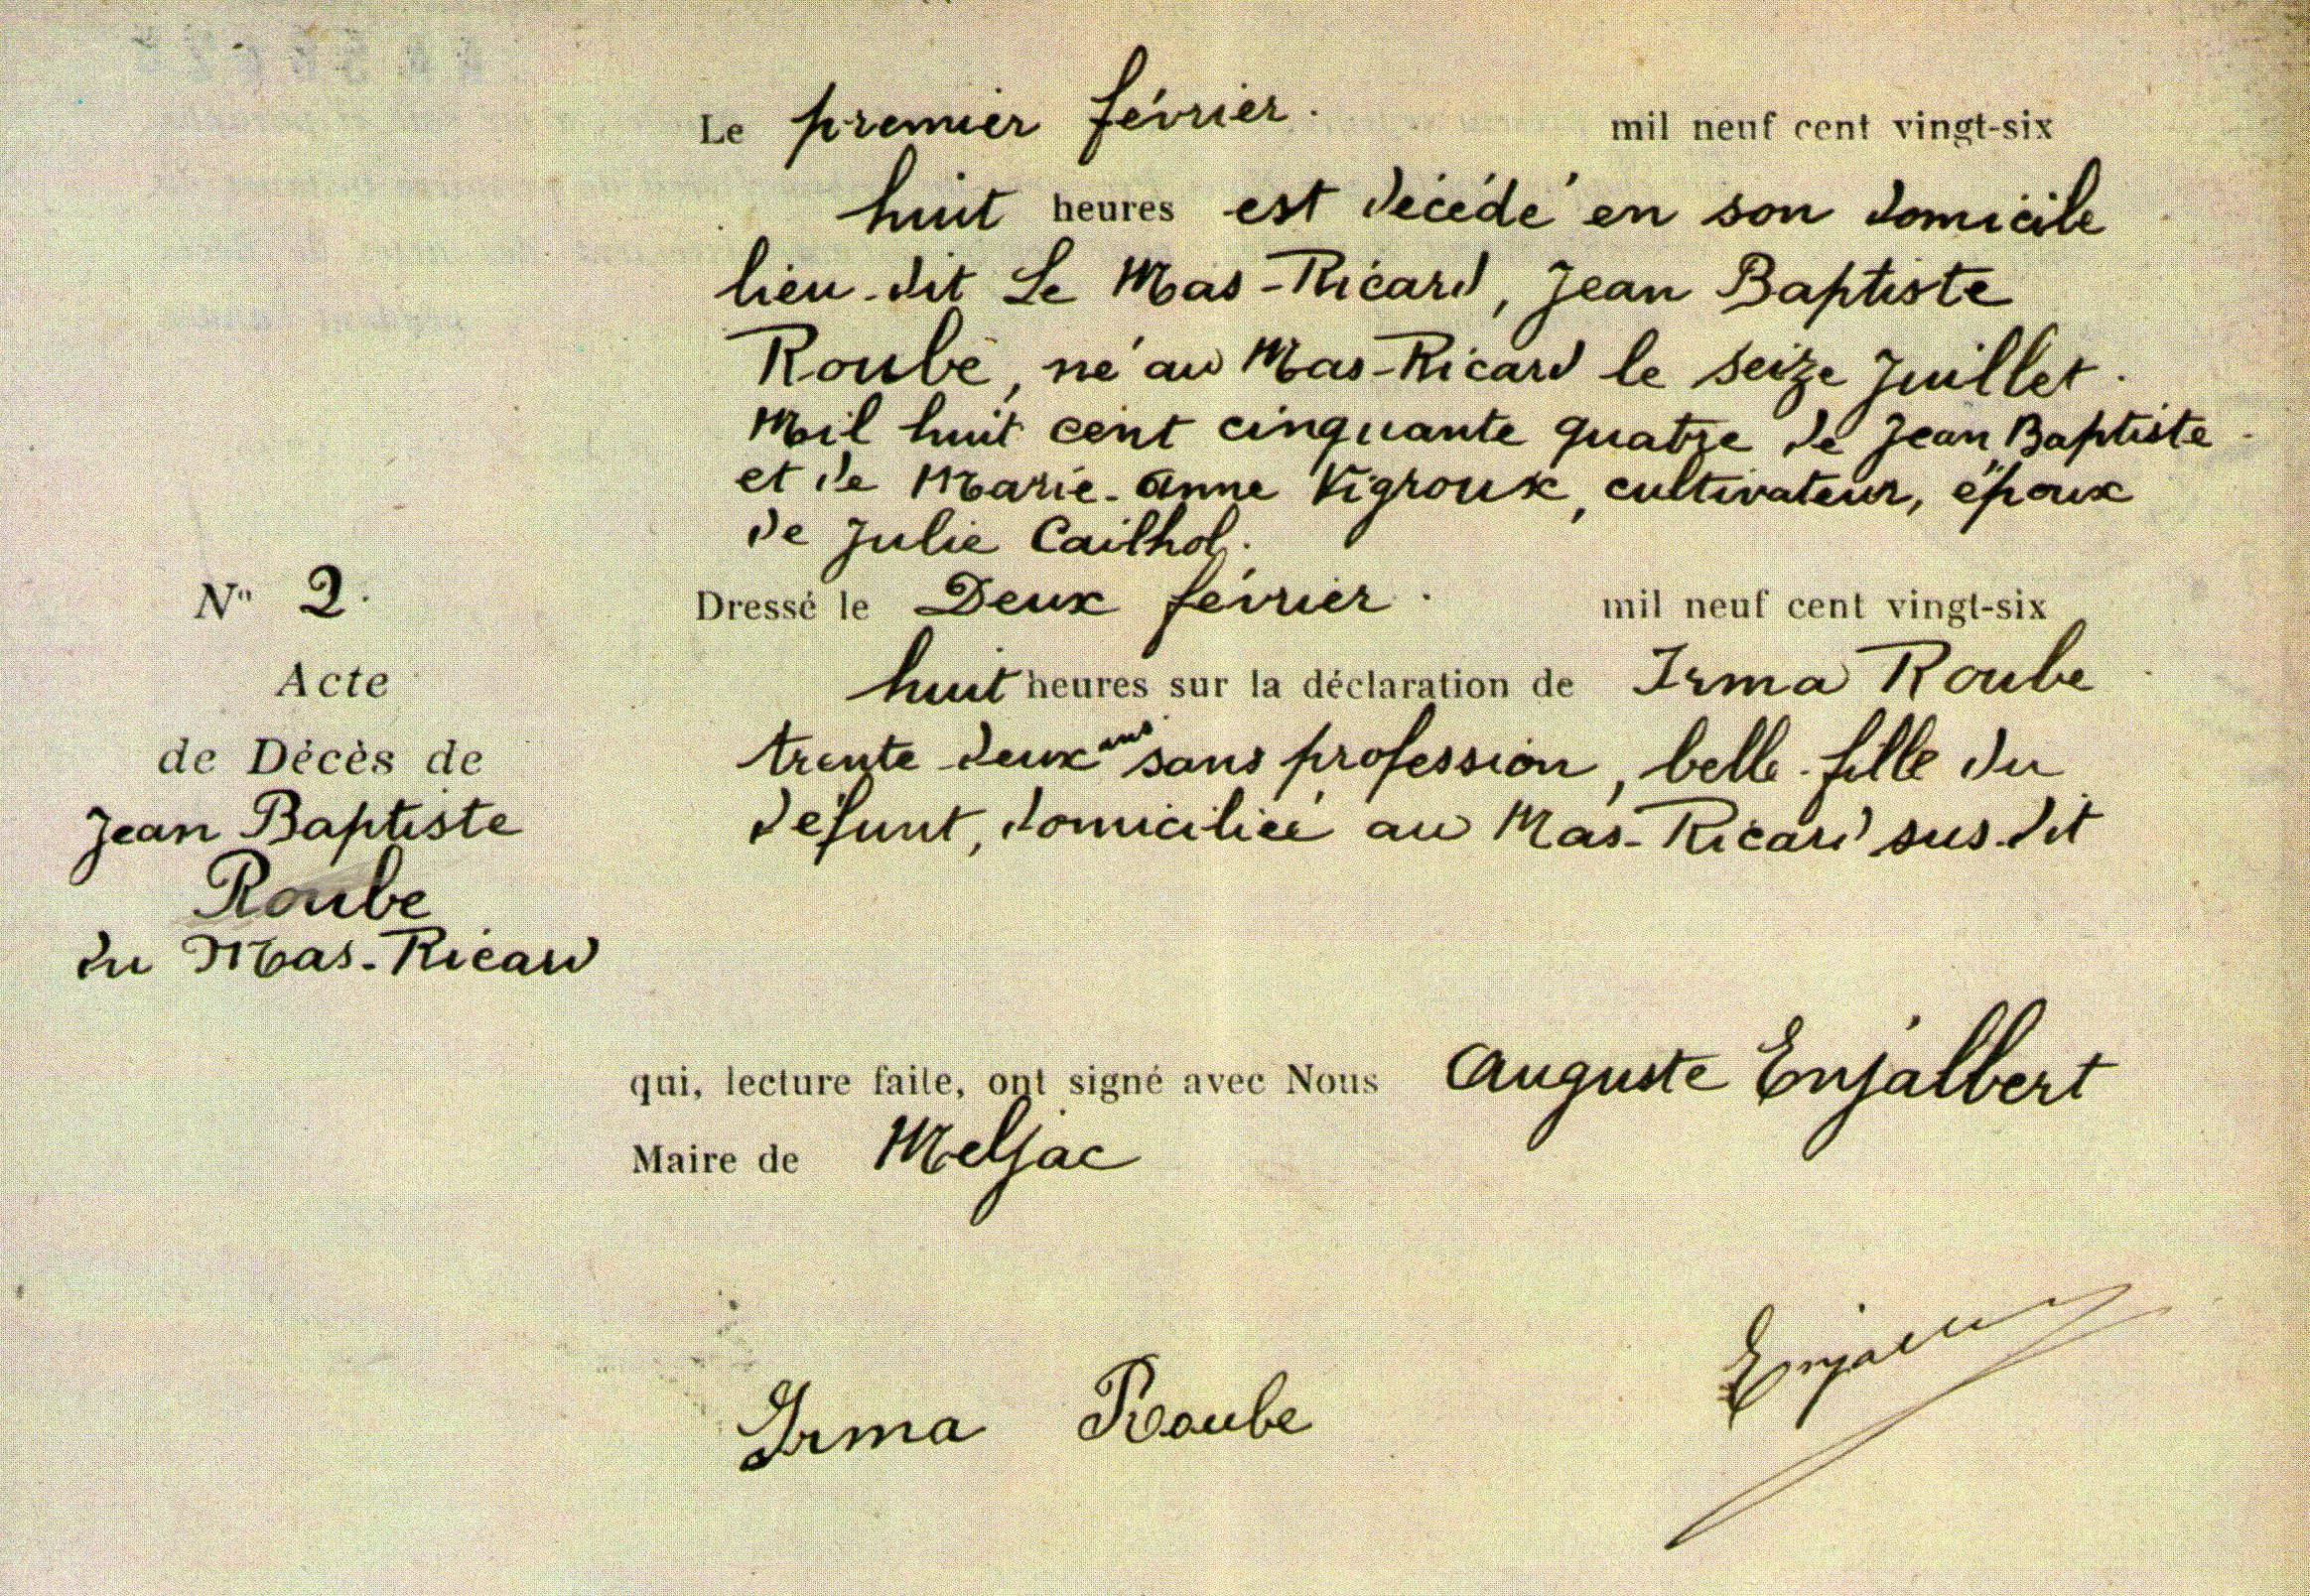 Le premier février. mil neuf cent vingt-six
huit heures est décédé en son domicile
lieu-dit Le Mas-Ricard, Jean Baptiste
Roube, né au Mas-Ricard le seize Juillet.
Mil huit cent cinquante quatre de Jean Baptiste
et de Marie-Anne Vigroux, cultivateur, époux
de Julie Cailhol.
N° 2.
Acte
de Décès de
Jean Baptiste
Roube
du Mas-Ricard
Dressé le Deux février. mil neuf cent vingt-six
huit heures sur la déclaration de Irma Roube
trente-deux ans sans profession, belle-fille du
défunt, domiciliée au Mas-Ricard sus-dit
qui, lecture faite, ont signé avec Nous Auguste Enjalbert
Maire de Meljac
Irma Roube